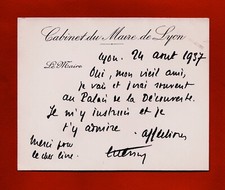 Cabinet du Maire de Lyon
Lyon. 24 aout 1937
Le Maire
Oui, mon vieil ami,
je vais et j'irai souvent
au Palais de la Découverte.
Je m'y instruis et je
t'y admire. Affections
Merci pour
le cher livre.